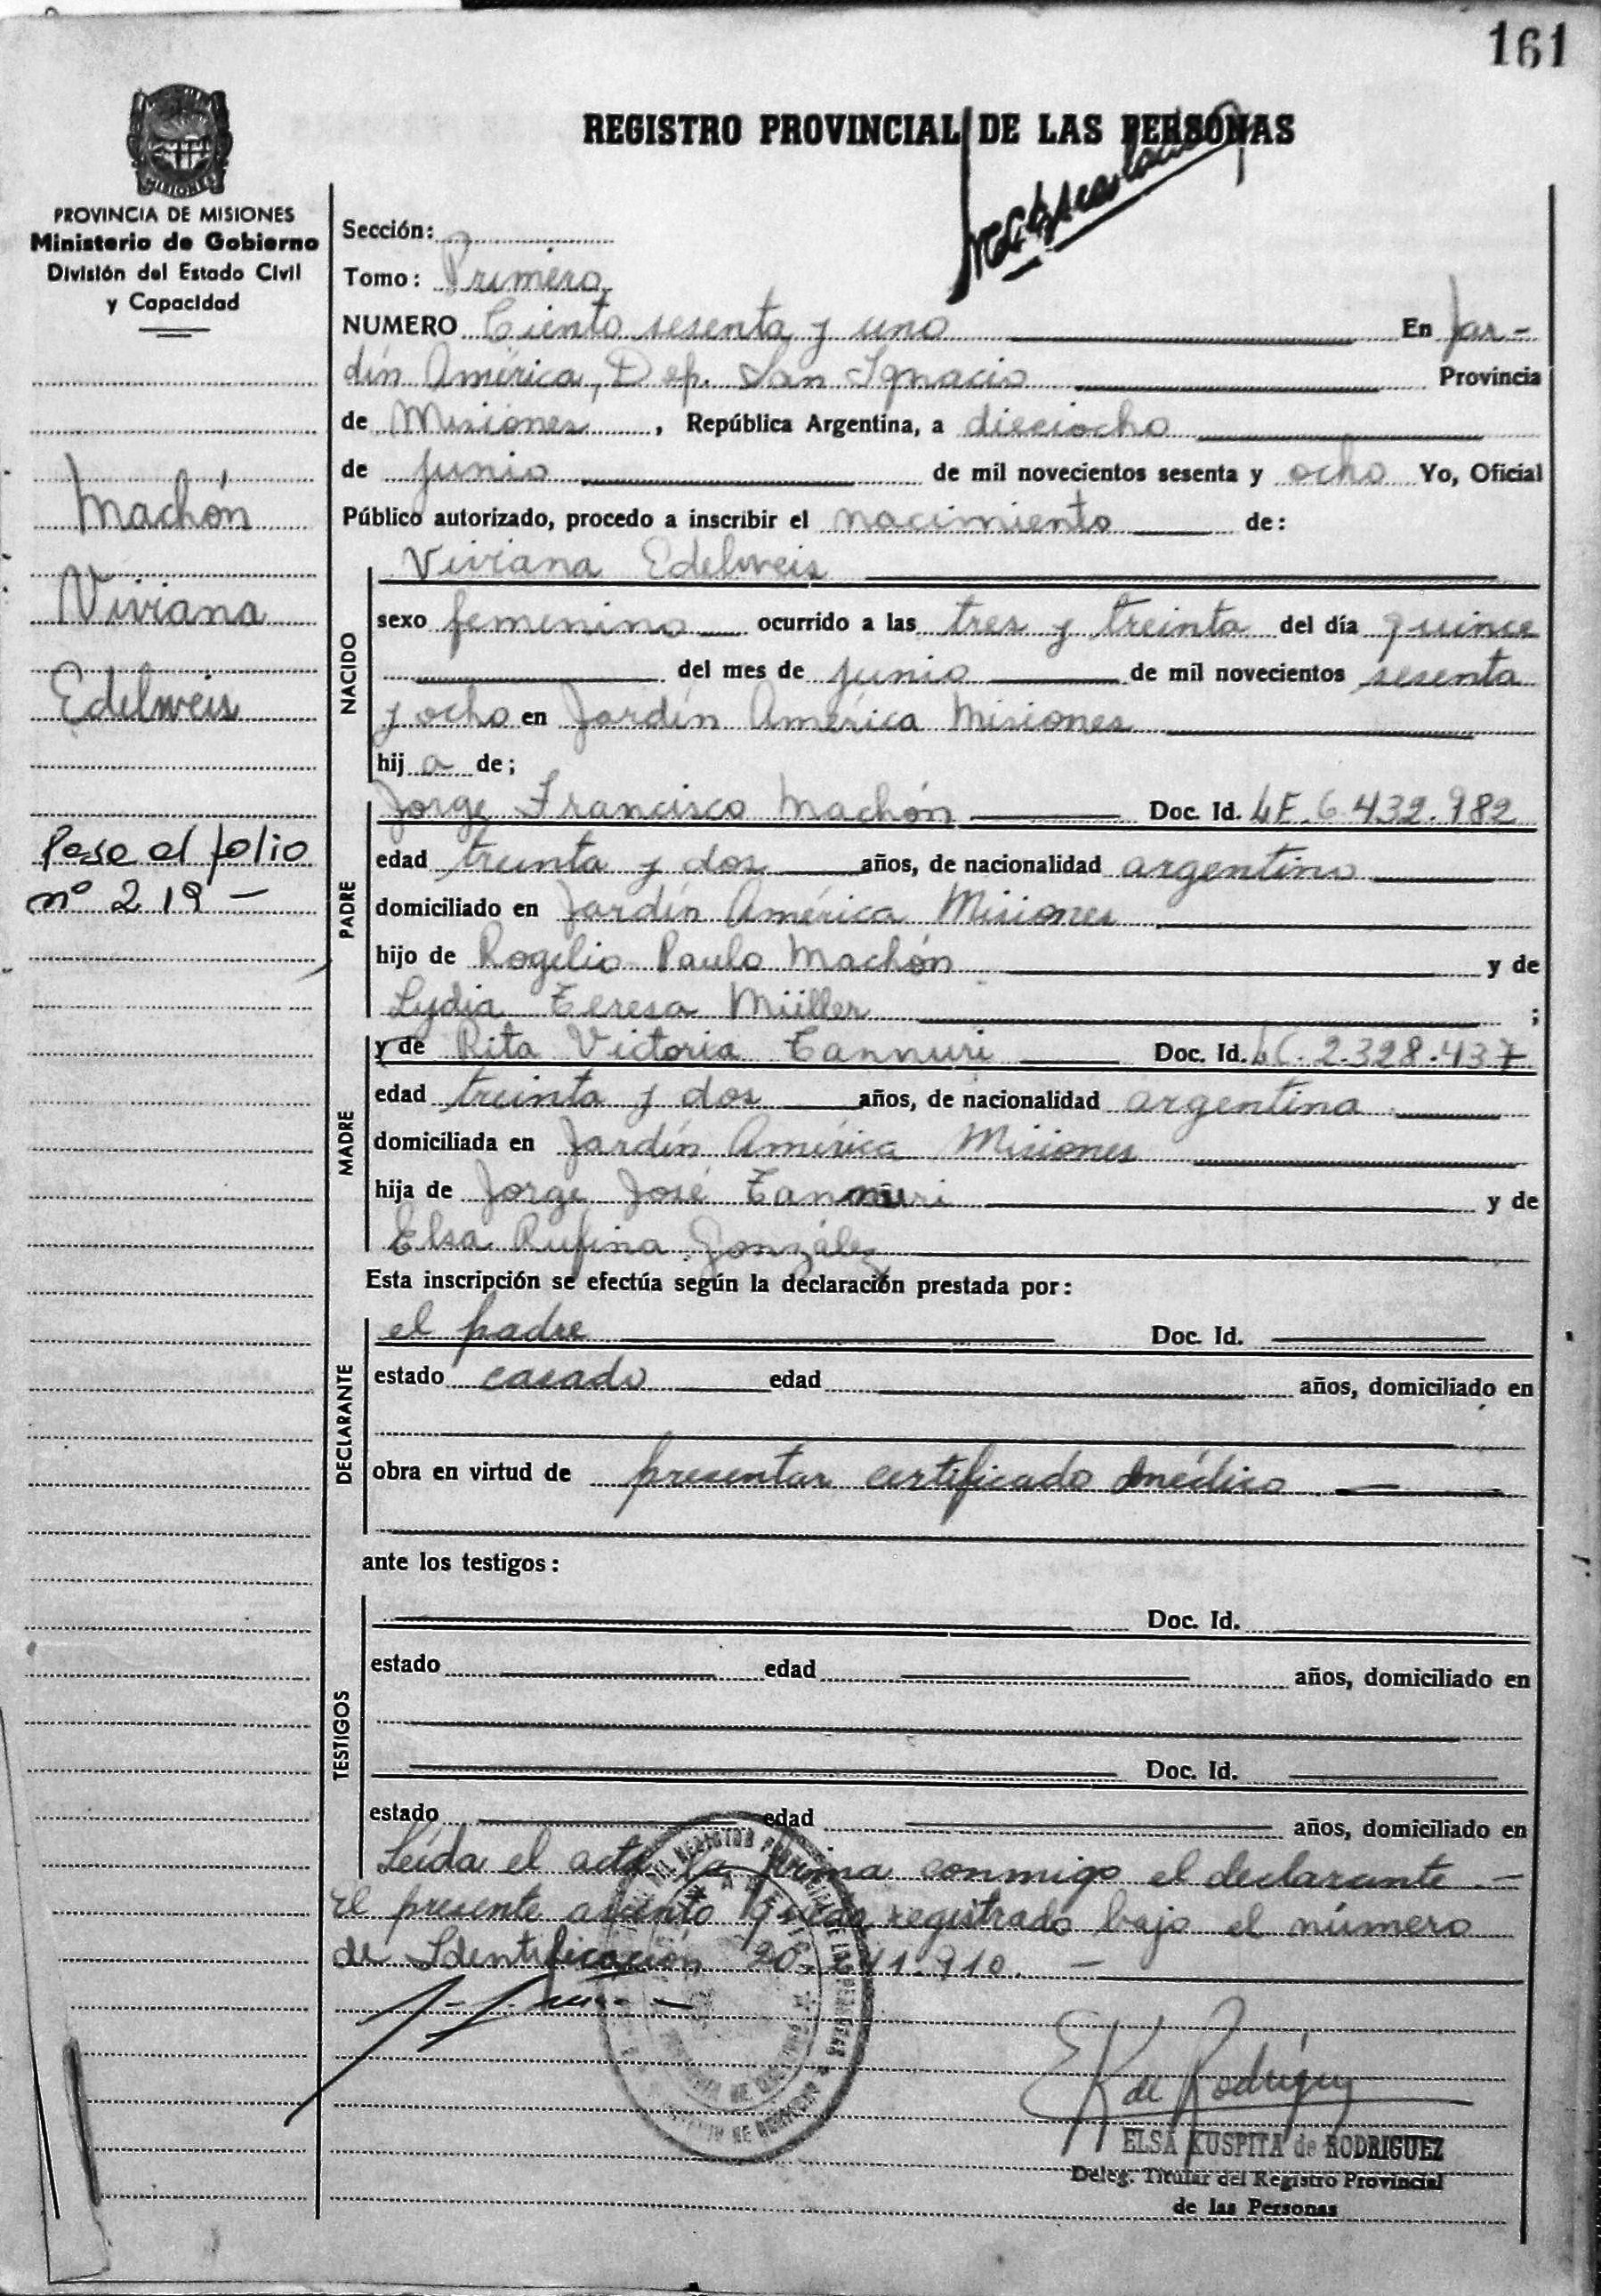 161
REGISTRO PROVINCIAL DE LAS PERSONAS
MISIONES
PROVINCIA DE MISIONES
Ministerio de Gobierno
División del Estado Civil
y Capacidad
Machón
Viviana
Edelweis
Pasa al folio
nº 219 -
Sección:
Tomo: Primero
NUMERO Ciento sesenta y uno En Jar-
dín América, Dep. San Ignacio Provincia
de Misiones, República Argentina, a dieciocho
de junio de mil novecientos sesenta y ocho Yo, Oficial
Público autorizado, procedo a inscribir el nacimiento de:
NACIDO
Viviana Edelweis
sexo femenino ocurrido a las tres y treinta del día quince
del mes de junio de mil novecientos sesenta
y ocho en Jardín América Misiones
hij a de;
PADRE
Jorge Francisco Machón Doc. Id. LE. 6.432.982
edad treinta y dos años, de nacionalidad argentino
domiciliado en Jardín América Misiones
hijo de Rogelio Paulo Machón y de
Lydia Teresa Müller ;
MADRE
y de Rita Victoria Tannuri Doc. Id. LC. 2.328.437
edad treinta y dos años, de nacionalidad argentina
domiciliada en Jardín América Misiones
hija de Jorge José Tannuri y de
Elsa Rufina González
Esta inscripción se efectúa según la declaración prestada por:
DECLARANTE
el padre Doc. Id.
estado casado edad años, domiciliado en
obra en virtud de presentar certificado médico
ante los testigos:
TESTIGOS
Doc. Id.
estado edad años, domiciliado en
Doc. Id.
estado edad años, domiciliado en
Leída el acta la firma conmigo el declarante.-
El presente asiento queda registrado bajo el número
de Identificación 20. 41.910. -
EK de Rodriguez
ELSA KUSPITA de RODRIGUEZ
Deleg. Titular del Registro Provincial
de las Personas